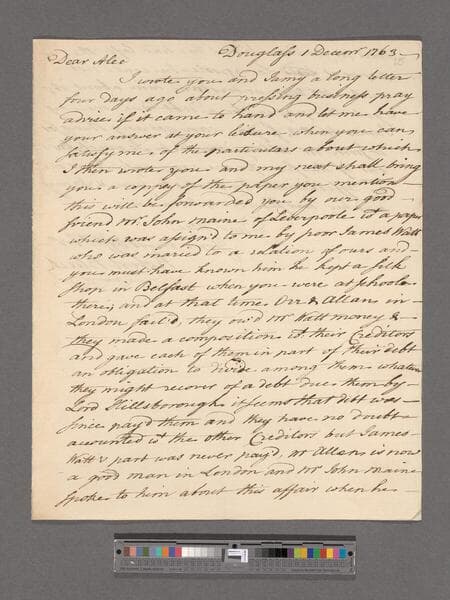 Douglass 1 Decem 1763
Dear Alec
I wrote you and Jamy a long letter
four days ago about pressing business pray
advice if it came to hand and let me have
your answer at your leisure when you can
satisfy me of the particulars about which
I then wrote you and my next shall bring
you a coppy of the paper you mention
this will be forwarded you by our good
friend Mr. John Maine of Leverpoole it a paper
which was assign'd to me by poor James Watt
who was maried to a relation of ours and
you must have known him he kept a silk
shop in Belfast when you were at schoole
there; and at that time Orr & Allan in
London fail'd, they ow'd Mr Watt money &
they made a composition wt their Creditors
and gave each of them in part of their debt
an obligation to divide among them whatever
they might recover of a debt due them by
Lord Hillsborough it seems that debt was
since payd them and they have no doubt
accounted wt the other Creditors but James
Watt's part was never payd, Mr Allan is now
a good man in London and Mr John Maine
spoke to him about this affair when he